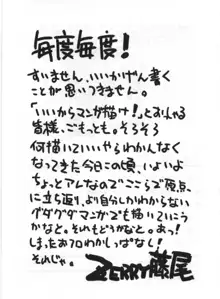 毎度毎度!
すいません、いいかげん書く
ことが思いつきません。
「いいからマンガ描け!」とおっしゃる
皆様、ごもっとも。そろそろ
何描いていいやらわかんなく
なってきた今日この頃、いよいよ
ちょっとアレなのでここらで原点
に立ち返り、より自分しかわからない
グダグダマンガでも描いていこう
かなと。それもどうかなと。あっ!
しまったおフロわかしっぱなし!
それじゃ。
JERRY藤尾